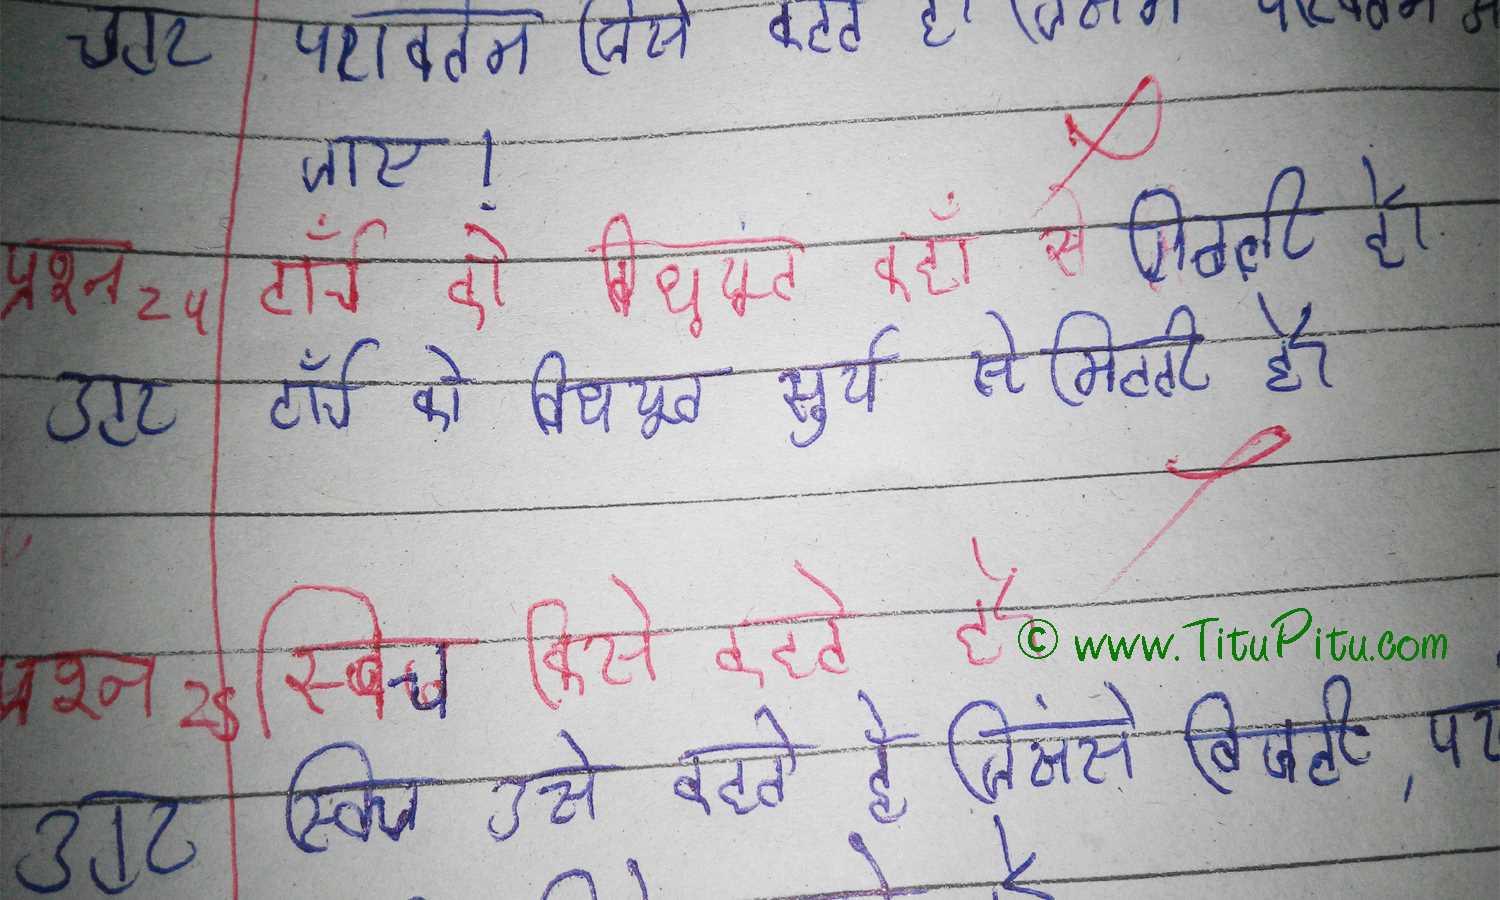 उत्तर परावर्तन जिसे कहते है। जिसमे परिवर्तन
जाए।
प्रश्न 24 टॉर्च को विधयूंत कहाँ से मिलती है।
उत्तर टॉर्च को विधयूत सुर्य से मिलती है।
प्रश्न 25 स्विच किसे कहते है
© www.TituPitu.com
उत्तर स्विच उसे कहते है जिंससे बिजली,